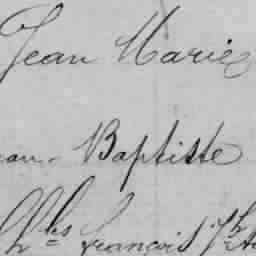 Jean Marie
ean-Baptiste
Ch.les françois J.h